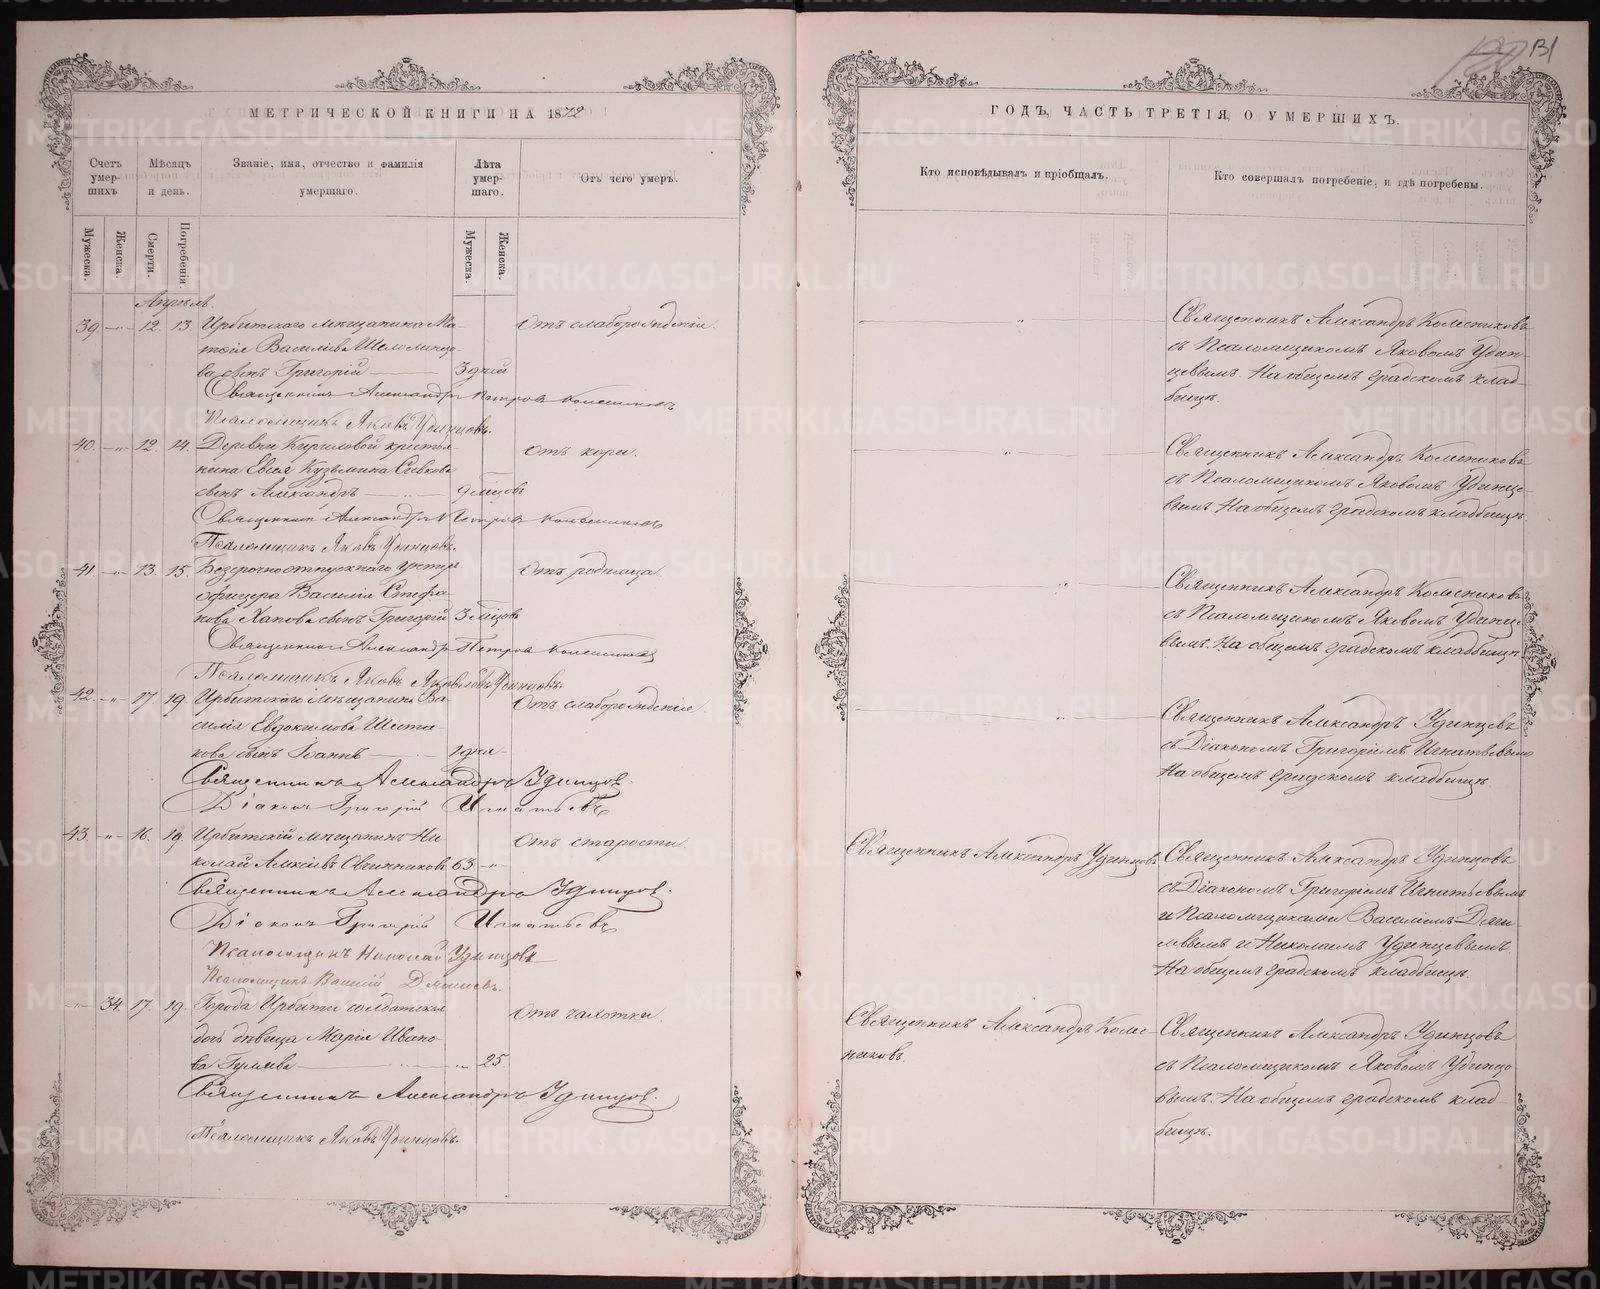 131
МЕТРИЧЕСКОЙ КНИГИ НА 1872
ГОДЪ, ЧАСТЬ ТРЕТІЯ, О УМЕРШИХЪ.
Счетъ умер-шихъ
Мѣсяцъ и день.
Званіе, имя, отчество и фамилія умершаго.
Лѣта умер-шаго.
Отъ чего умеръ.
Кто исповѣдывалъ и пріобщалъ.
Кто совершалъ погребеніе, и гдѣ погребены.
Мужеска.
Женска.
Смерти.
Погребенія.
Мужеска.
Женска.
Апрѣль.
39 —"— 12. 13. Ирбитскаго мѣщанина Ма-
тѳія Васильева
ва сынъ Григорій — 3 дней
Отъ слаборожденія.
Священникъ Александръ Петровъ Колесниковъ
Псаломщикъ Яковъ Удинцовъ.
Священникъ Александръ Колесниковъ
съ Псаломщикомъ Яковомъ Удин-
цевымъ. На общемъ градскомъ клад-
бищѣ.
40. —"— 12. 14. Деревни Кириловой крестья-
нина Евсея Кузьмина
сынъ Александръ — " — 9 мѣцовъ
Отъ кори.
Священникъ Александръ Петровъ Колесниковъ
Псаломщикъ Яковъ Удинцовъ.
Священникъ Александръ Колесниковъ
съ Псаломщикомъ Яковомъ Удинце-
вымъ. На общемъ градскомъ кладбищѣ.
41. —"— 13. 15. Безсрочноотпускнаго унтеръ
офицера Василія Стефа-
нова Хапова сынъ Григорій 3 мѣцовъ
Отъ родимца.
Священникъ Александръ Петровъ Колесниковъ
Псаломщикъ Яковъ Яковлевъ Удинцовъ.
Священникъ Александръ Колесниковъ
съ Псаломщикомъ Яковомъ Удинце-
вымъ. На общемъ градскомъ кладбищѣ.
42. —"— 17. 19. Ирбитскаго мѣщанина Ва-
силія Евдокимова Шеста-
кова сынъ Іоаннъ — 1 дня
Отъ слаборожденія.
Священникъ Александръ Удинцов.
Діаконъ Григорій Игнатьевъ
Священникъ Александръ Удинцевъ
съ Діакономъ Григоріемъ Игнатьевымъ
На общемъ градскомъ кладбищѣ.
43. —"— 16. 19. Ирбитскій мѣщанинъ Ни-
колай Алексѣевъ Овчинниковъ 63 —"—
Отъ старости.
Священникъ Александръ Удинцов.
Діаконъ Григорій Игнатьевъ
Псаломщикъ Николай Удинцовъ
Псаломщикъ Василій
Священникъ Александръ Удинцовъ
Священникъ Александръ Удинцовъ
съ Діакономъ Григоріемъ Игнатьевымъ
и Псаломщиками Василіемъ
и Николаемъ Удинцевымъ.
На общемъ градскомъ кладбищѣ.
—"— 34. 17. 19. Города Ирбити солдатская
дочь дѣвица Марія Ивано-
ва — " — 25.
Отъ чахотки.
Священникъ Александръ Удинцов.
Псаломщикъ Яковъ Удинцовъ.
Священникъ Александръ Колес-
никовъ.
Священникъ Александръ Удинцовъ
съ Псаломщикомъ Яковомъ Удинцо-
вымъ. На общемъ градскомъ клад-
бищѣ.
METRIKI.GASO-URAL.RU